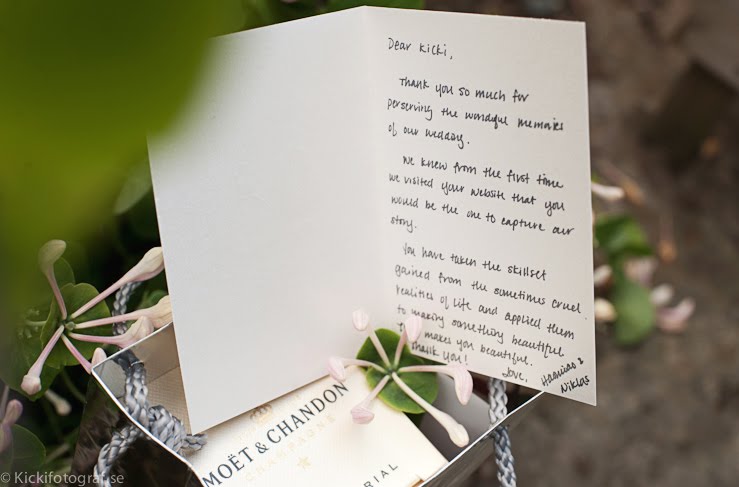 Dear Kicki,
Thank you so much for
perserving the wonderful memories
of our wedding.
We knew from the first time
we visited your website that you
would be the one to capture our
story.
You have taken the skillset
gained from the sometimes cruel
realities of life and applied them
to making something beautiful.
makes you beautiful.
Thank you!
Love,
&
Niklas
MOËT & CHANDON
CHAMPAGNE
RIAL
© Kickifotograf.se